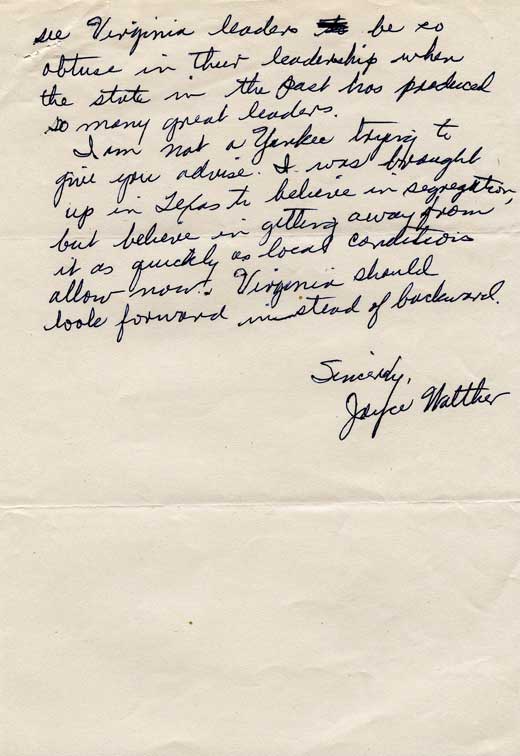 see Virginia leaders be so
obtuse in their leadership when
the state in the past has produced
so many great leaders.
I am not a Yankee trying to
give you advise. I was brought
up in Texas to believe in segregation,
but believe in getting away from
it as quickly as local conditions
allow now. Virginia should
look forward instead of backward.
Sincerely,
Joyce Walther